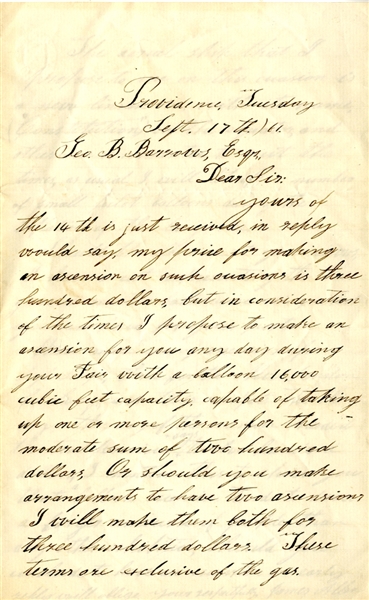 Providence, Tuesday
Sept. 17th/61.
Geo. B. Barrows, Esqr,
Dear Sir:
yours of
the 14th is just received, in reply
would say, my price for making
an ascension on such occasions is three
hundred dollars, but in consideration
of the times I propose to make an
ascension for you any day during
your Fair with a balloon 16,000
cubic feet capacity, capable of taking
up one or more persons for the
moderate sum of two hundred
dollars, Or should you make
arrangements to have two ascensions
I will make them both for
three hundred dollars. These
terms are exclusive of the gas.